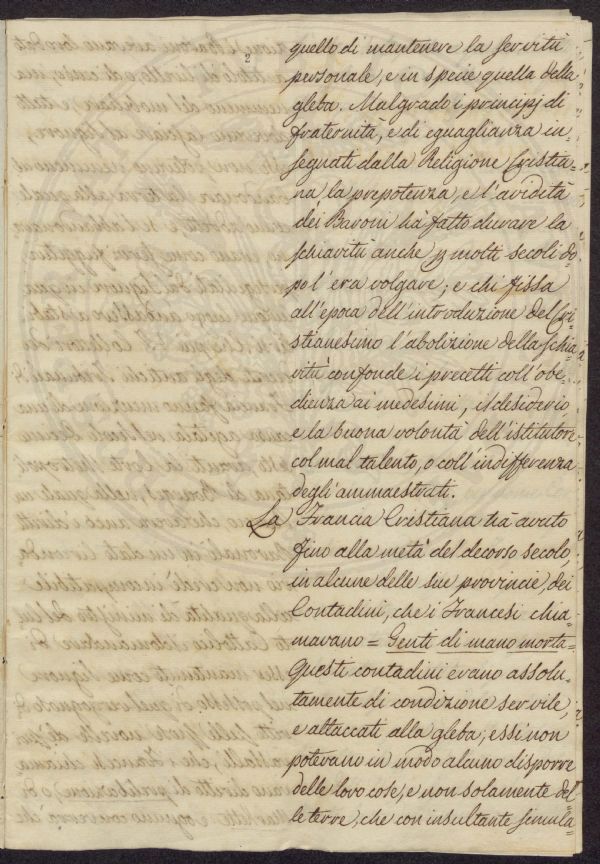 2
quello di mantenere la servitù
personale, e in specie quella della
gleba. Malgrado i principj di
fraternità, e di eguaglianza in-
segnati dalla Religione Cristia-
na la prepotenza, e l'avidità
dei Baroni hà fatto durare la
schiavitù anche p molti secoli do-
po l'era volgare; e chi fissa
all'epoca dell'introduzione del Cri-
stianesimo l'abolizione della schia-
vitù confonde i precetti coll'obe-
dienza ai medesimi, il desiderio,
e la buona volontà dell'istitutore
col mal talento, o coll'indifferenza
degli ammaestrati.
La Francia Cristiana hà avuto
fino alla metà del decorso secolo,
in alcune delle sue provincie, dei
Contadini, che i Francesi chia-
mavano = Genti di mano morta-
Questi contadini erano assolu-
tamente di condizione servile,
e attaccati alla gleba; essi non
potevano in modo alcuno disporre
delle loro cose, e non solamente del-
le terre, che con insultante simula-